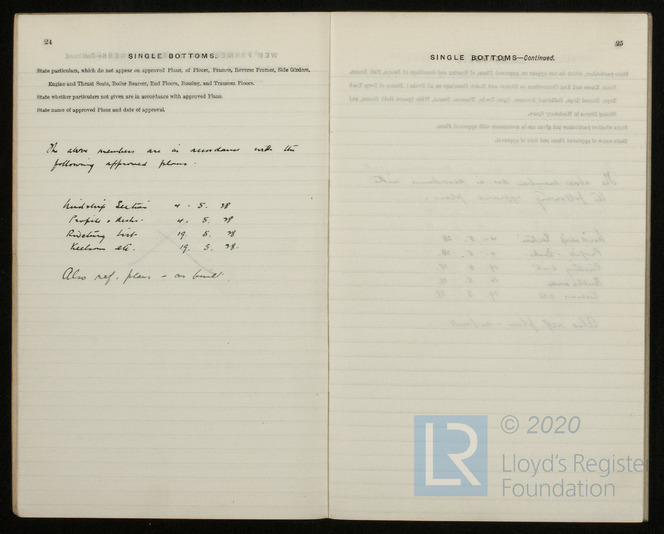 24
SINGLE BOTTOMS.
State particulars, which do not appear on approved Plans, of Floors, Frames, Reverse Frames, Side Girders,
Engine and Thrust Seats, Boiler Bearers, End Floors, Bossing, and Transom Floors.
State whether particulars not given are in accordance with approved Plans.
State name of approved Plans and date of approval.
The above members are in accordance with the
following approved plans.
Midship Section 4. 5. 28
Profile & decks. 4. 5. 28
Riveting List 19. 5. 28
Keelson etc. 19. 5. 28.
Also ref. plans - as built.
25
SINGLE BOTTOMS—Continued.
LR
© 2020
Lloyd's Register
Foundation